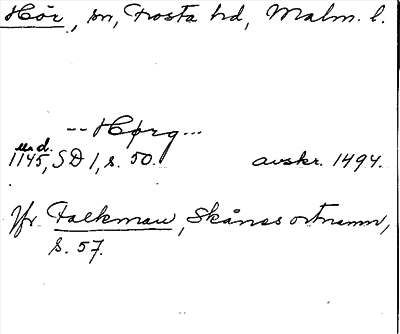 Hör, sn, Frosta hd, Malm. l.
-- Hørg ...
und.
1145, SD 1, s. 50. avskr. 1494.
Jfr Falkman, Skånes ortnamn,
s. 57.